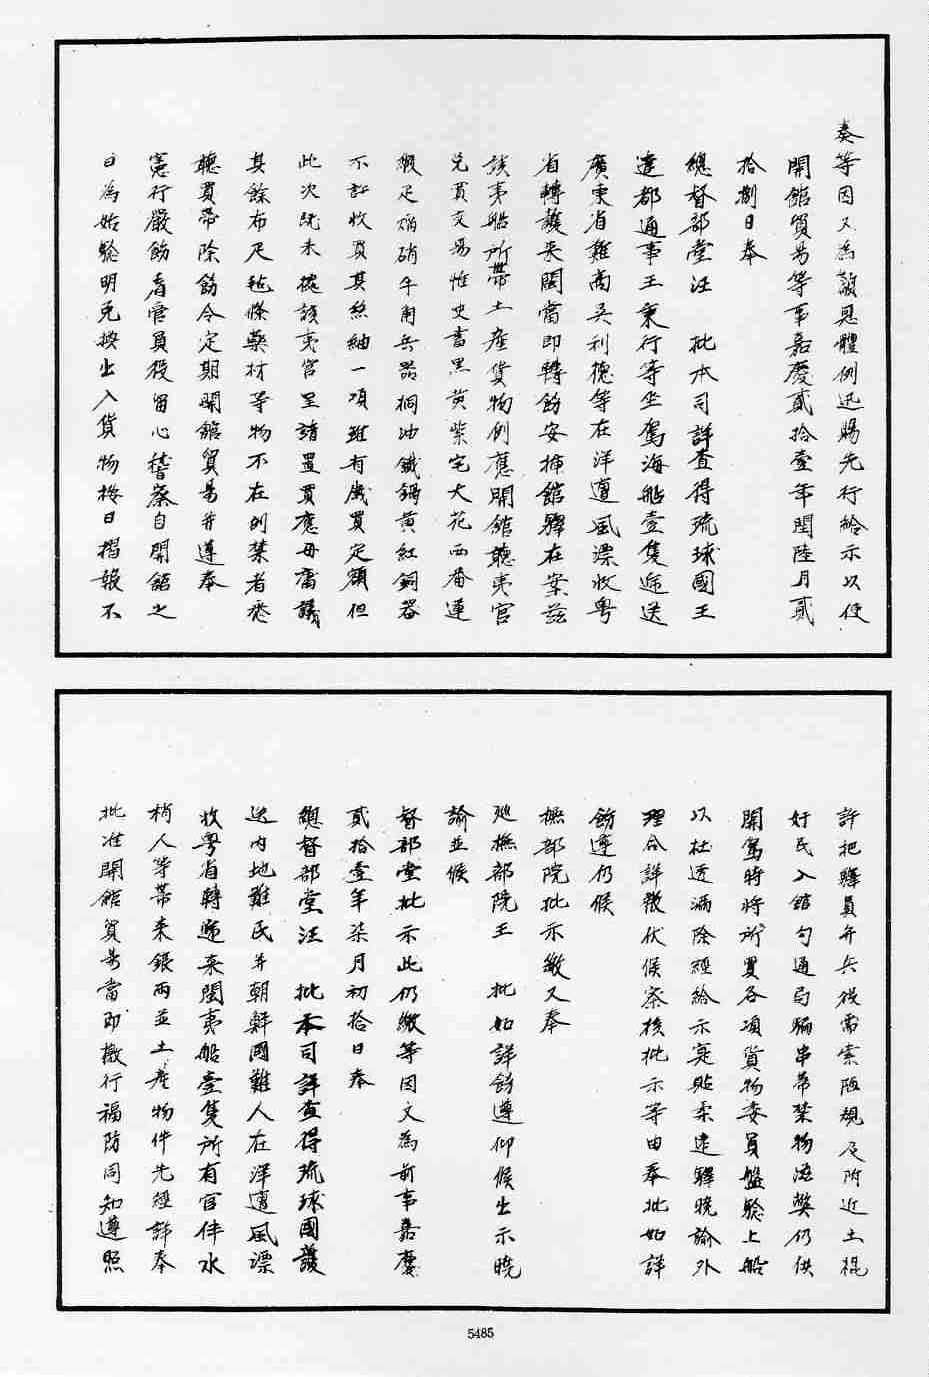 奏等因又為籲恩體例迅賜先行給示以便
開館貿易等事嘉慶貳拾壹年閏陸月貳
拾捌日奉
總督部堂汪 批本司詳查得琉球國王
遣都通事王秉行等坐駕海船壹隻遞送
廣東省難商吳利德等在洋遭風漂收粵
省轉護來閩當即轉飭安揷館驛在案茲
該夷船所帶土產貨物例應開館聽夷官
兌買交易惟史書黑黄紫宅大花西番蓮
緞疋焰硝牛角兵器桐油鐵鍋黄紅銅器
不許收買其絲紬一項雖有歲買定額但
此次既未據該夷官呈請置買應毋庸議
其餘布疋毡條藥材等物不在例禁者悉
聽買帶除飭令定期開館貿易并遵奉
憲行嚴飭看管員役留心稽察自開館之
日為始驗明兄按出入貨物按日摺報不
許把驛員弁兵役需索陋規及附近土棍
奸民入館勾通局騙串帶禁物滋獘仍俟
開駕時將所買各項貨物委員盤驗上船
以杜透漏除經給示寔貼柔遠驛曉諭外
理合詳報伏候察核批示等由奉批如詳
飭遵仍候
撫部院批示繳又奉
廵撫部院王 批如詳飭遵仰候出示曉
諭並候
督部堂批示此仍繳等因又為前事嘉慶
貳拾壹年柒月初拾日奉
總督部堂汪 批本司詳查得琉球國護
送内地難民并朝鮮國難人在洋遭風漂
收粵省轉遞來閩夷船壹隻所有官伴水
梢人等帶來銀兩並土產物件先經詳奉
批准開館貿易當即檄行福防同知遵照
5485